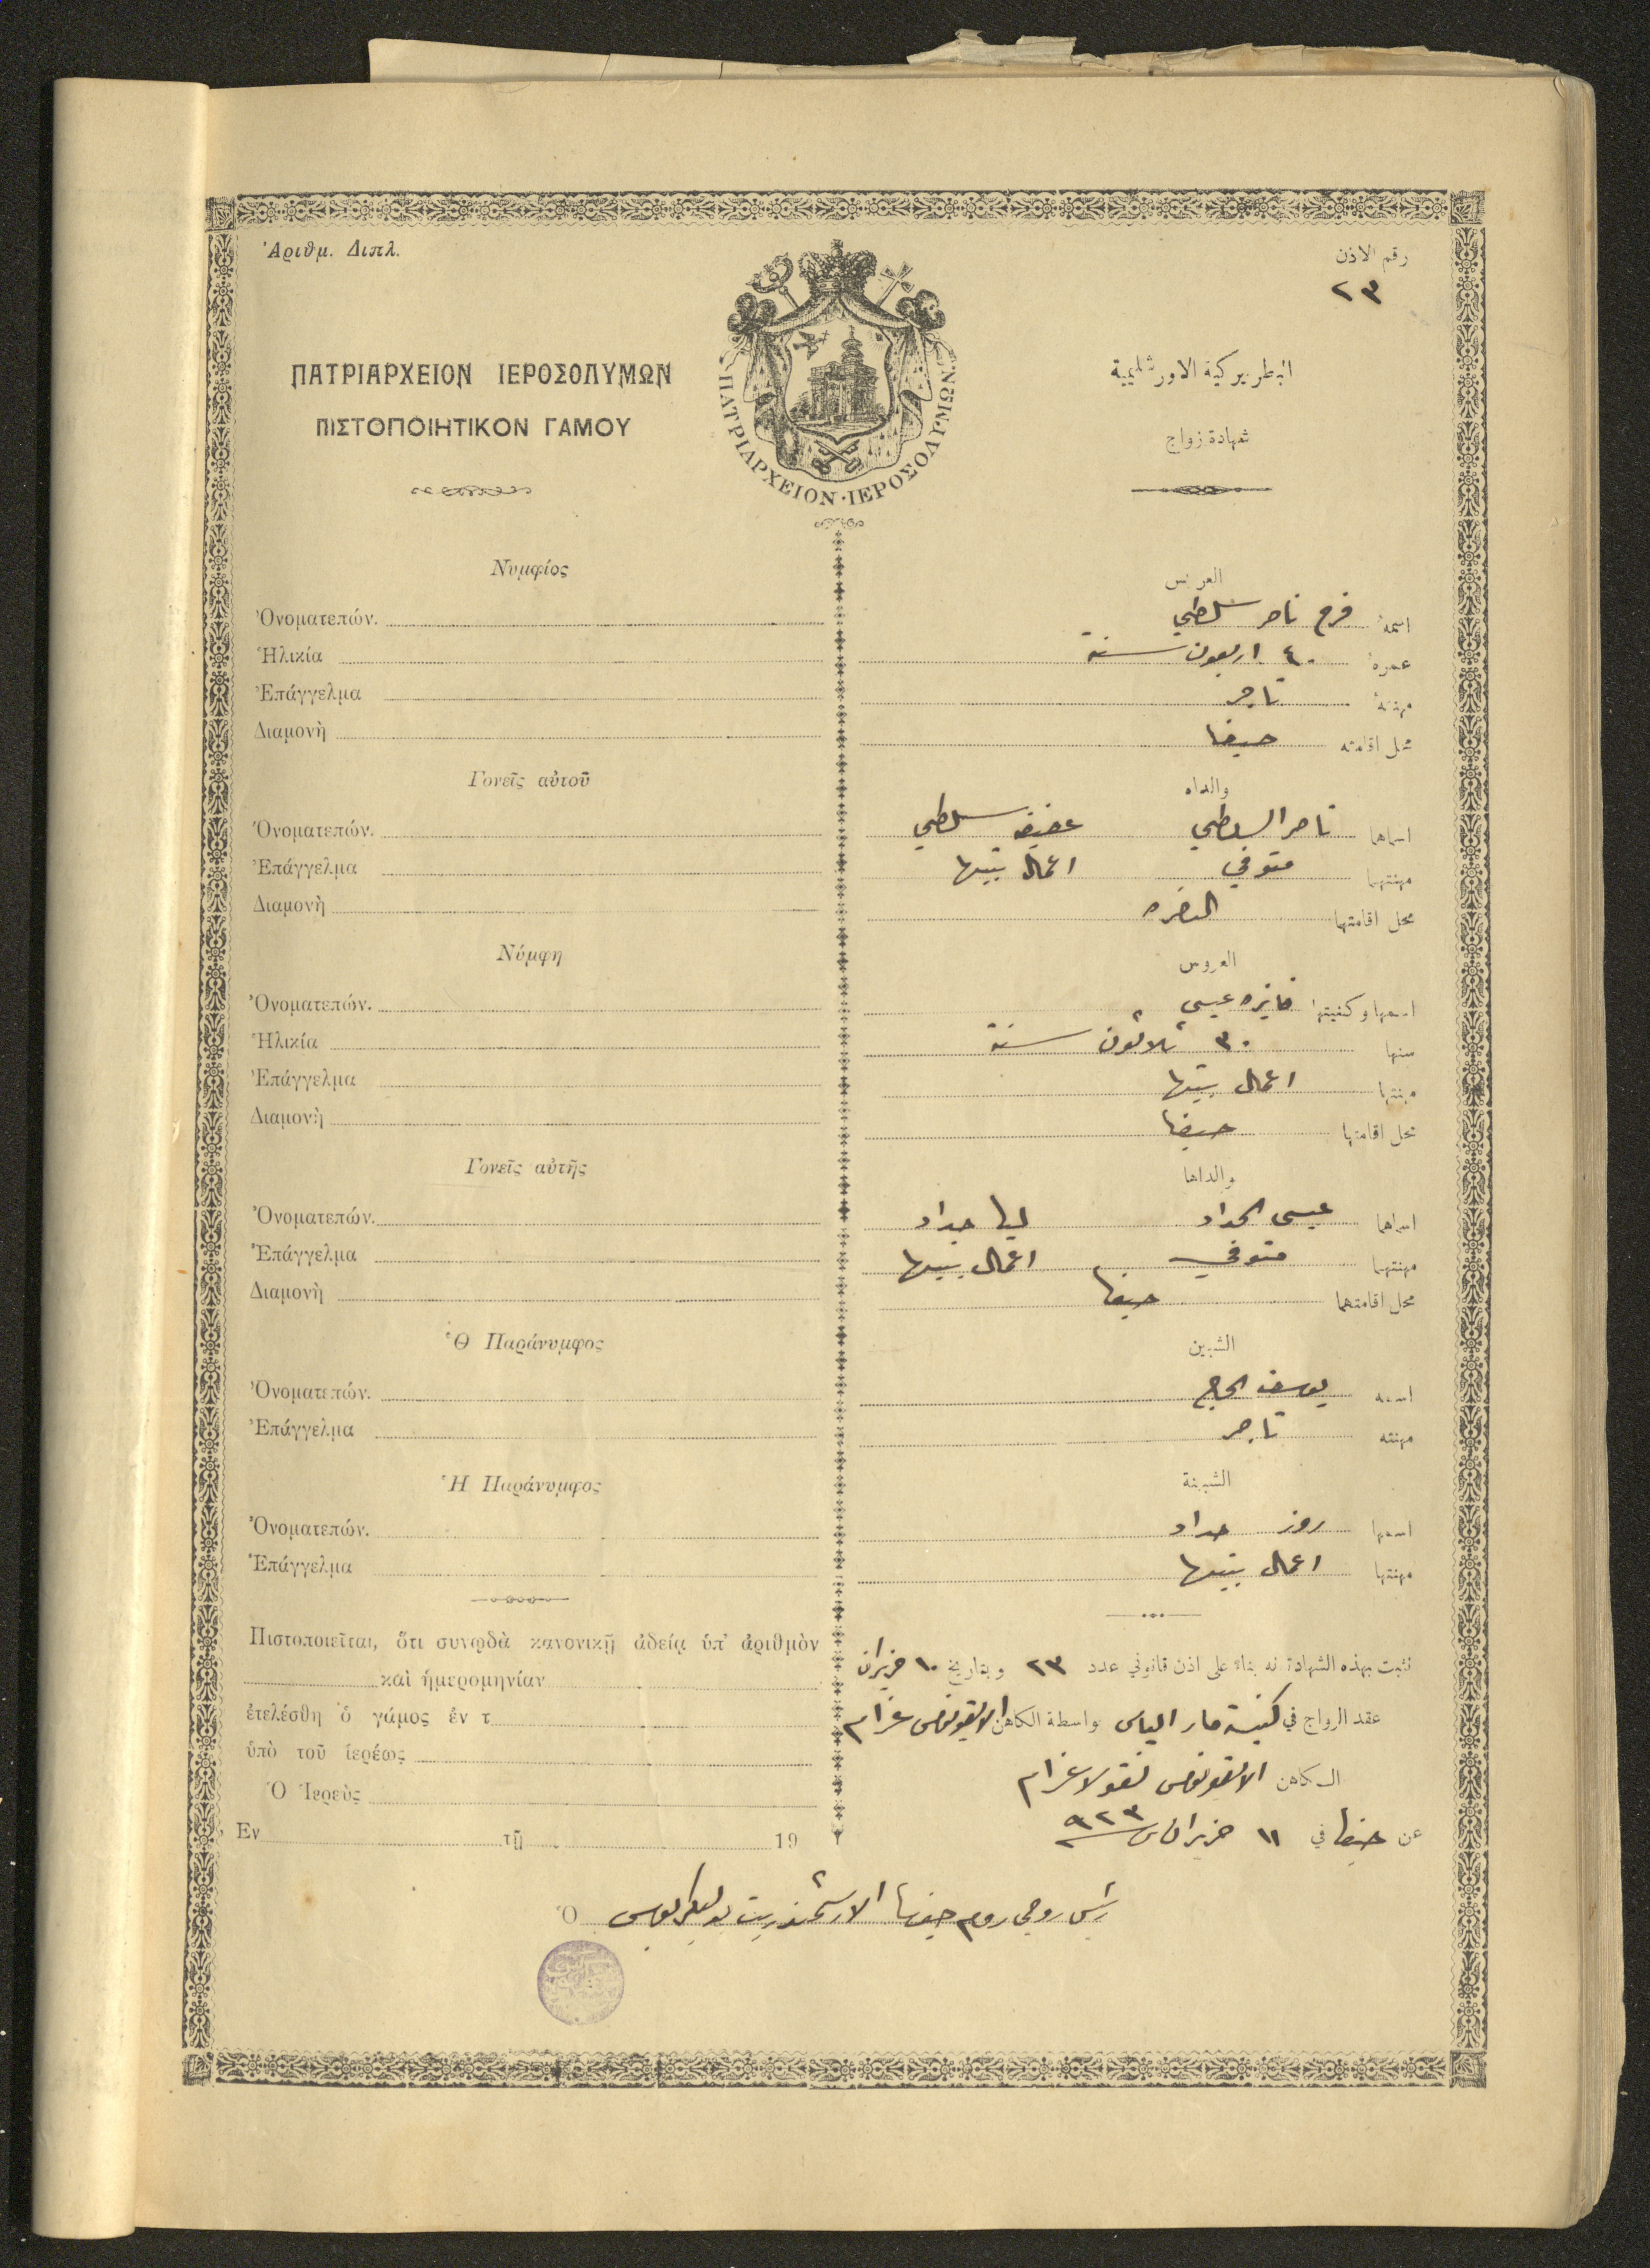 Ἀριθμ. Διπλ.
رقم الاذن
٢٣
ΠΑΤΡΙΑΡΧΕΙΟΝ ΙΕΡΟΣΟΛΥΜΩΝ
ΠΙΣΤΟΠΟΙΗΤΙΚΟΝ ΓΑΜΟΥ
ΠΑΤΡΙΑΡΧΕΙΟΝ·ΙΕΡΟΣΟΛΥΜΩΝ.
البطريركية الاورشليمية
شهادة زواج
Νυμφίος
Ὀνοματεπών.
Ἡλικία
Ἐπάγγελμα
Διαμονὴ
Γονεῖς αὐτοῦ
Ὀνοματεπών.
Ἐπάγγελμα
Διαμονὴ
Νύμφη
Ὀνοματεπών.
Ἡλικία
Ἐπάγγελμα
Διαμονὴ
Γονεῖς αὐτῆς
Ὀνοματεπών.
Ἐπάγγελμα
Διαμονὴ
Ὁ Παράνυμφος
Ὀνοματεπών.
Ἐπάγγελμα
Ἡ Παράνυμφος
Ὀνοματεπών.
Ἐπάγγελμα
Πιστοποιεῖται, ὅτι συνῳδὰ κανονικῇ ἀδείᾳ ὑπ' ἀριθμὸν
καὶ ἡμερομηνίαν
ἐτελέσθη ὁ γάμος ἐν τ
ὑπὸ τοῦ ἱερέως
Ὁ Ἱερεὺς
Ἐν τῇ 19
العريس
اسمه فرح ناصر سلطي
عمره ٤٠ اربعون سنة
مهنته تاجر
محل اقامته حيفا
والداه
اسماهما ناصر السلطي عفيفه سلطي
مهنتهما متوفي اعمال بيتها
محل اقامتهما الناصره
العروس
اسمها وكنيتها فايزه عيسى
سنها ٣٠ ثلاثون سنة
مهنتها اعمال بيتها
محل اقامتها حيفا
والداها
اسماهما عيسى الحداد ليا حداد
مهنتهما متوفي اعمال بيتها
محل اقامتهما حيفا
الشبين
اسمه يوسف الحاج
مهنته تاجر
الشبينة
اسمها روز حداد
مهنتها اعمال بيتها
نثبت بهذه الشهادة انه بناء على اذن قانوني عدد ٢٣ وبتاريخ ١٠ حزيران
عقد الزواج في كنيسة مار الياس بواسطة الكاهن الايقونوس عزام
الكاهن الايقونوس نقولا عزام
عن حيفا في ١١ حزيران س ٩٢٣
Ὁ رئيس روحي روم حيفا الارشمندريت